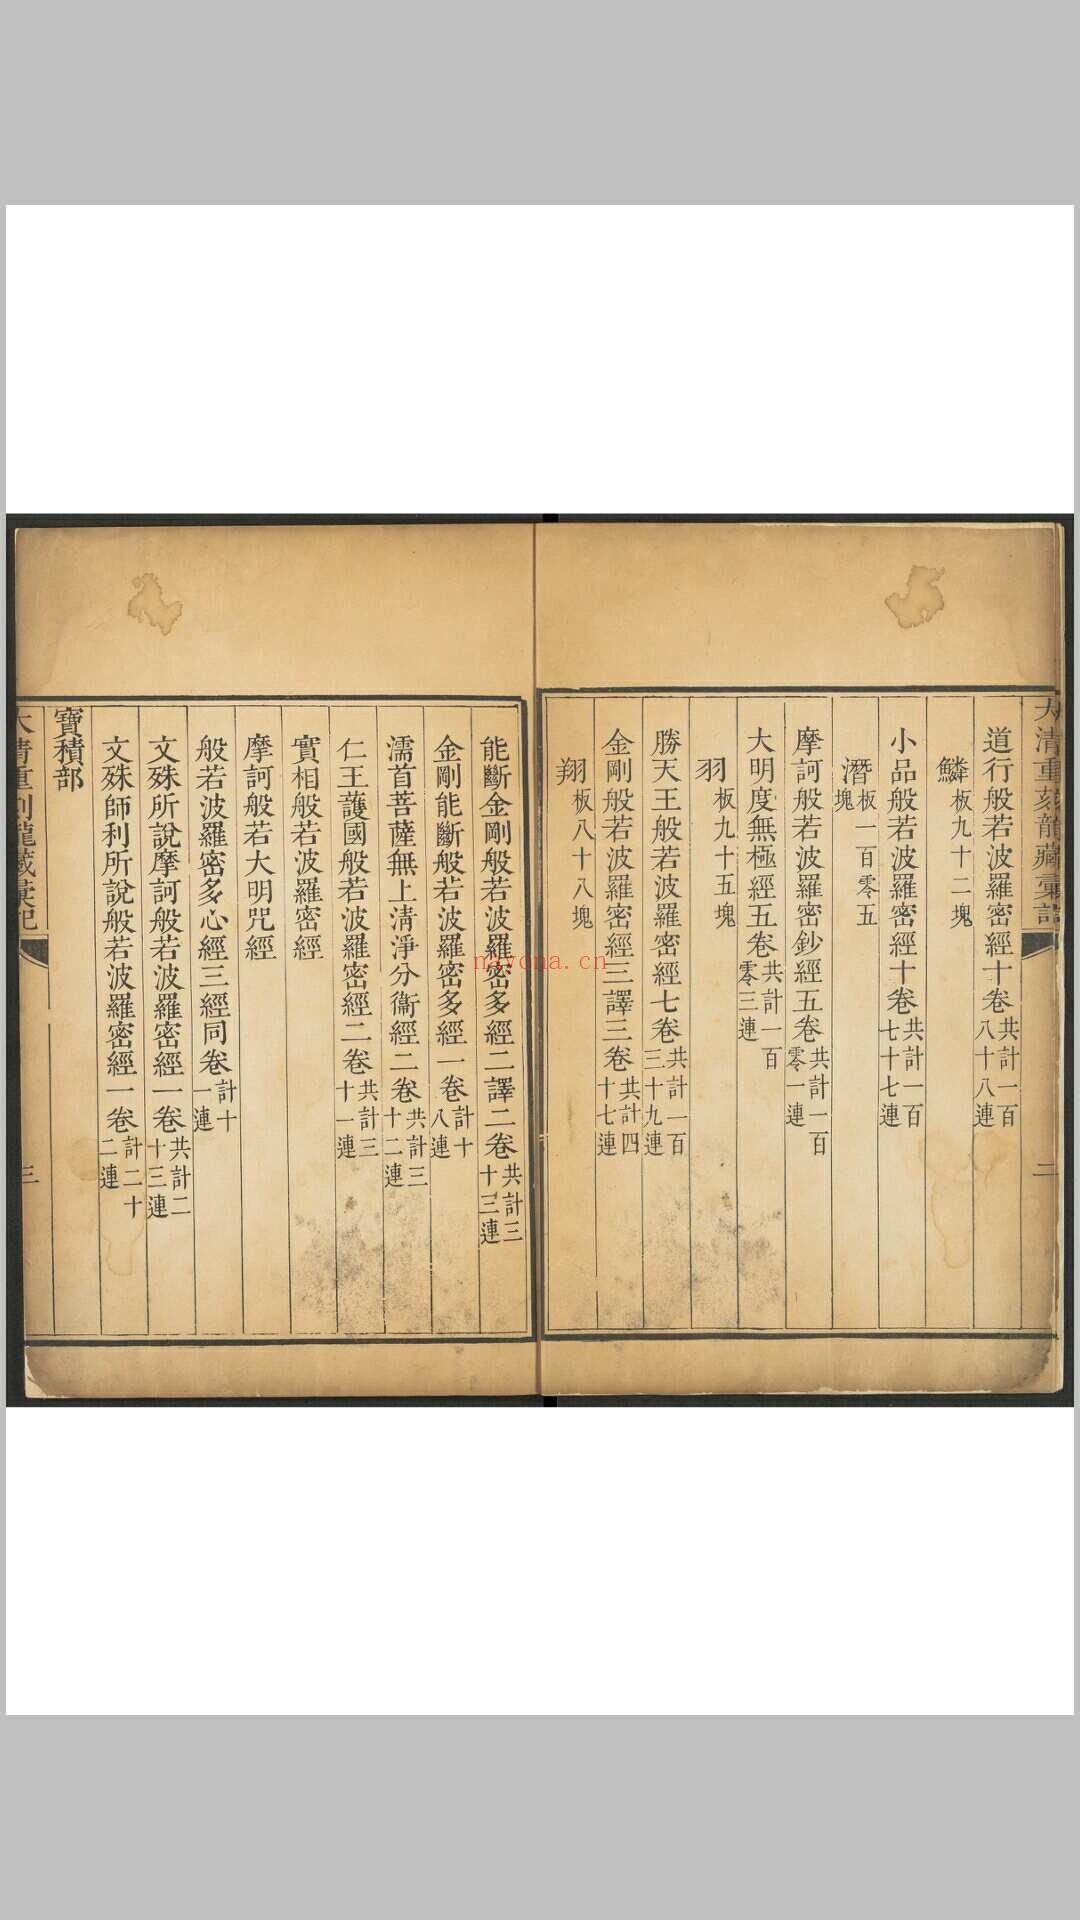 大清重刻龍藏彙記 二
道行般若波羅密經十卷共計一百八十八連
鱗板九十二塊
小品般若波羅密經十卷共計一百七十七連
潛板一百零五塊
摩訶般若波羅密鈔經五卷共計一百零一連
大明度無極經五卷共計一百零三連
羽板九十五塊
勝天王般若波羅密經七卷共計一百三十九連
金剛般若波羅密經三譯三卷共計四十七連
翔板八十八塊
能斷金剛般若波羅密多經二譯二卷共計三十三連
金剛能斷般若波羅密多經一卷計十八連
濡首菩薩無上清淨分衞經二卷共計三十二連
仁王護國般若波羅密經二卷共計三十一連
實相般若波羅密經
摩訶般若大明咒經
般若波羅密多心經三經同卷計十一連
文殊所說摩訶般若波羅密經一卷共計二十三連
文殊師利所說般若波羅密經一卷計二十二連
寶積部
大清重刻龍藏彙記 三
nayona.cn